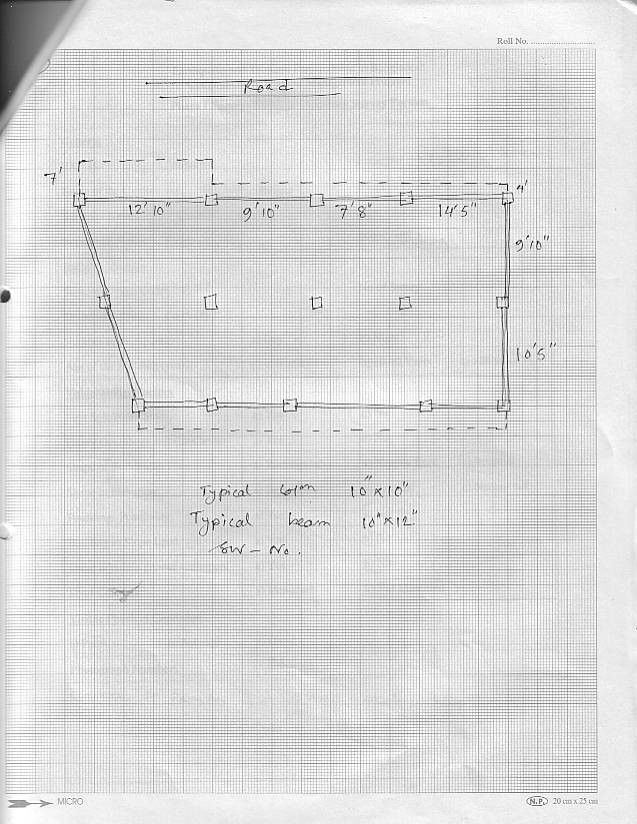 Roll No.
Road
7'
4'
12' 10"
9' 10"
7' 8"
14' 5"
9' 10"
10' 5"
Typical colmn 10" x 10"
Typical beam 10" x 12"
SW - No.
MICRO
N.P. 20 cm x 25 cm